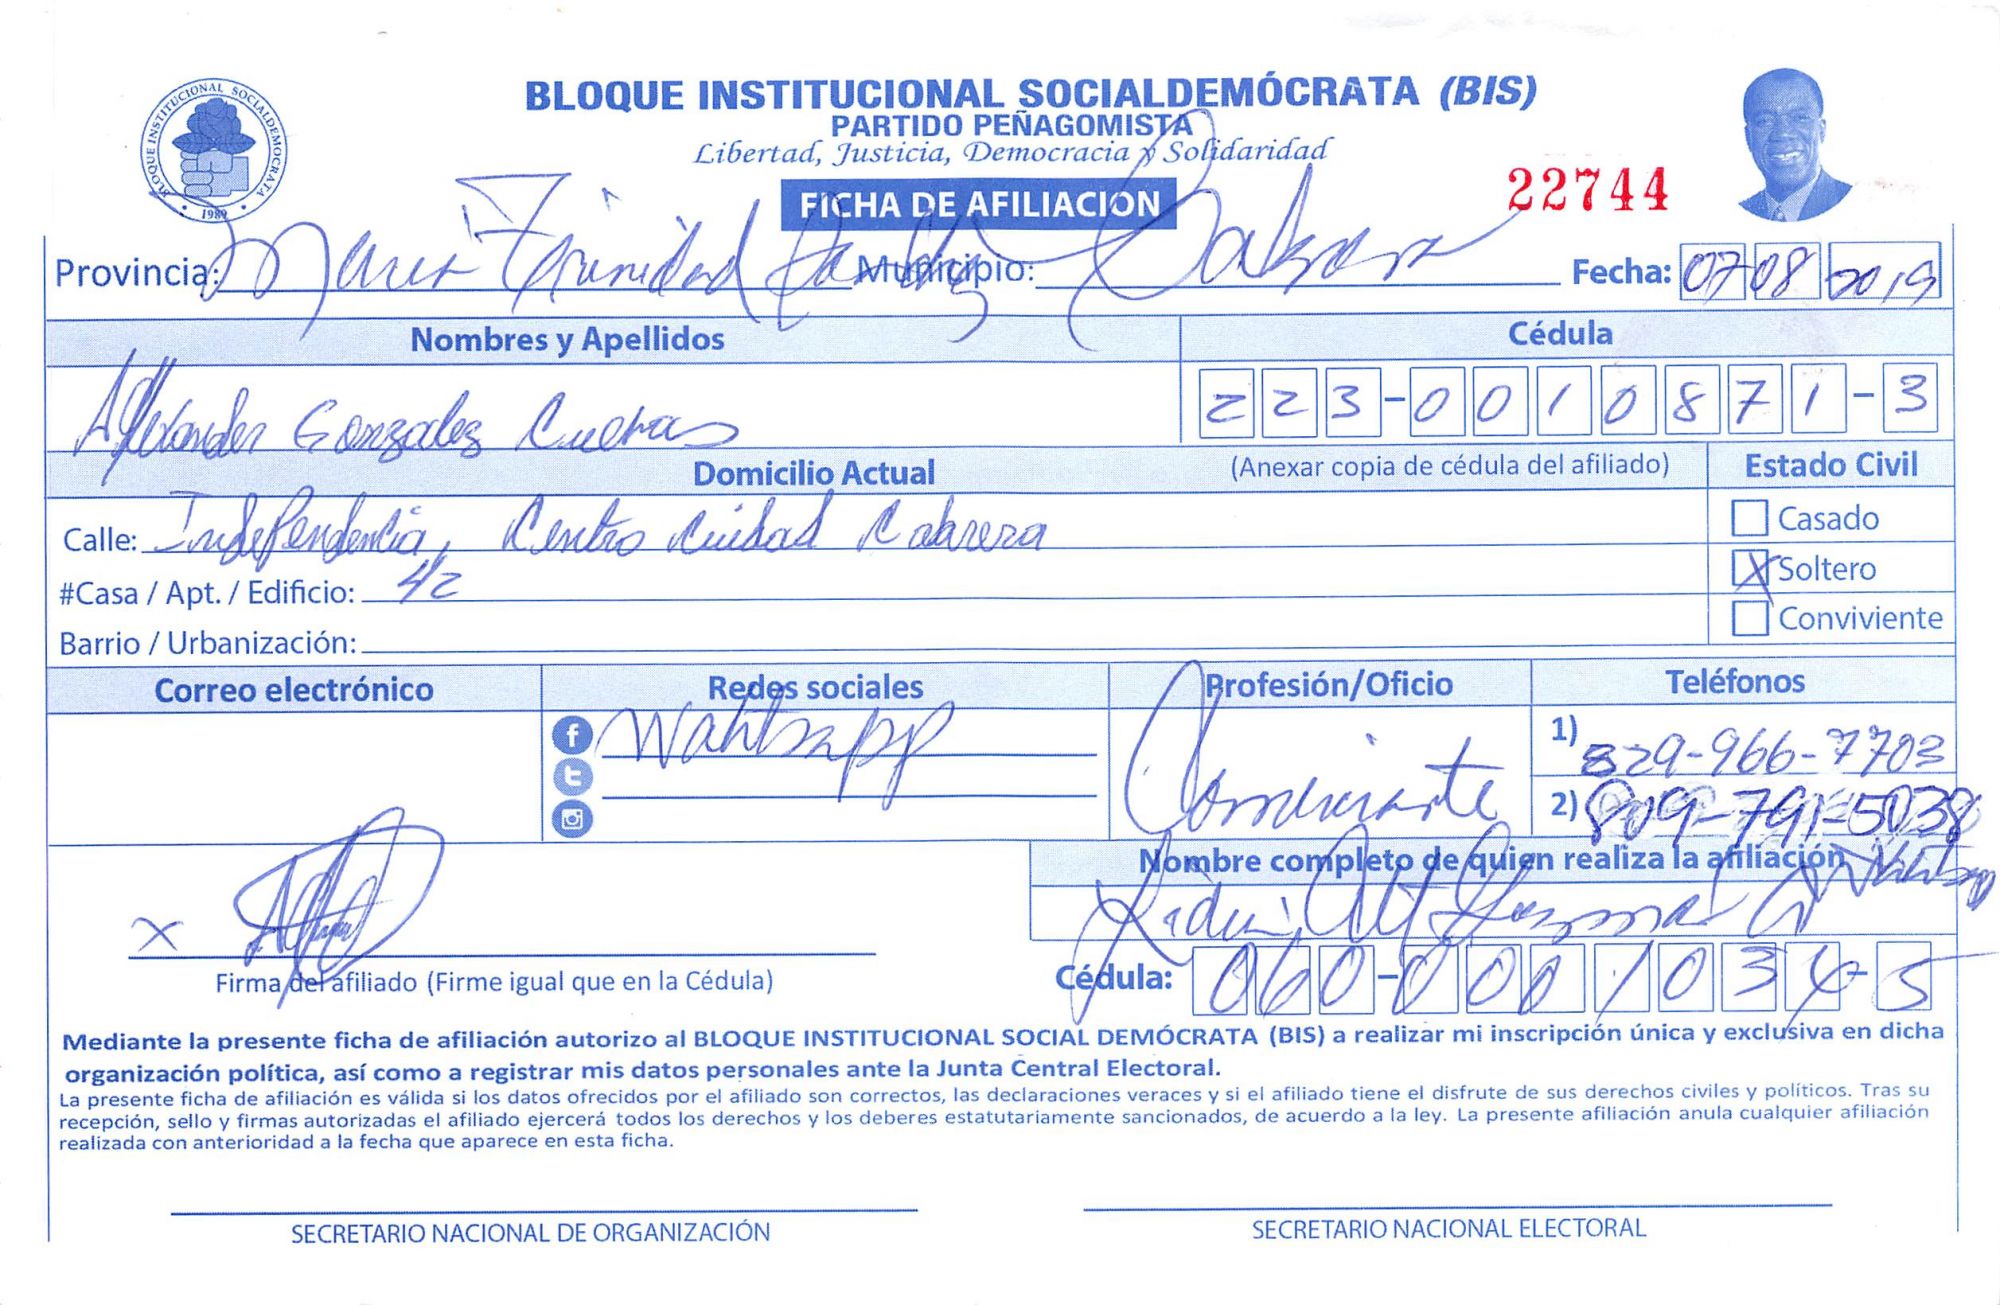 BLOQUE INSTITUCIONAL SOCIALDEMÓCRATA (BIS)
PARTIDO PEÑAGOMISTA
Libertad, Justicia, Democracia y Solidaridad
BLOQUE INSTITUCIONAL SOCIALDEMOCRATA
1989
FICHA DE AFILIACIÓN
22744
Provincia: Maria Trinidad Sanchez Municipio: Cabrera Fecha: 07 08 2019
Nombres y Apellidos Cédula
Alexander Gonzalez Cuevas 223-0010871-3
Domicilio Actual (Anexar copia de cédula del afiliado) Estado Civil
Calle: Independencia, Centro Ciudad Cabrera
Casado
#Casa / Apt. / Edificio: 42
X Soltero
Barrio / Urbanización:
Conviviente
Correo electrónico Redes sociales Profesión/Oficio Teléfonos
Wahtsapp Comerciante 1) 829-966-7703
2) 809-791-5038
Nombre completo de quien realiza la afiliación
X
Firma del afiliado (Firme igual que en la Cédula)
Cédula: 060-0001034-5
Mediante la presente ficha de afiliación autorizo al BLOQUE INSTITUCIONAL SOCIAL DEMÓCRATA (BIS) a realizar mi inscripción única y exclusiva en dicha
organización política, así como a registrar mis datos personales ante la Junta Central Electoral.
La presente ficha de afiliación es válida si los datos ofrecidos por el afiliado son correctos, las declaraciones veraces y si el afiliado tiene el disfrute de sus derechos civiles y políticos. Tras su
recepción, sello y firmas autorizadas el afiliado ejercerá todos los derechos y los deberes estatutariamente sancionados, de acuerdo a la ley. La presente afiliación anula cualquier afiliación
realizada con anterioridad a la fecha que aparece en esta ficha.
SECRETARIO NACIONAL DE ORGANIZACIÓN SECRETARIO NACIONAL ELECTORAL